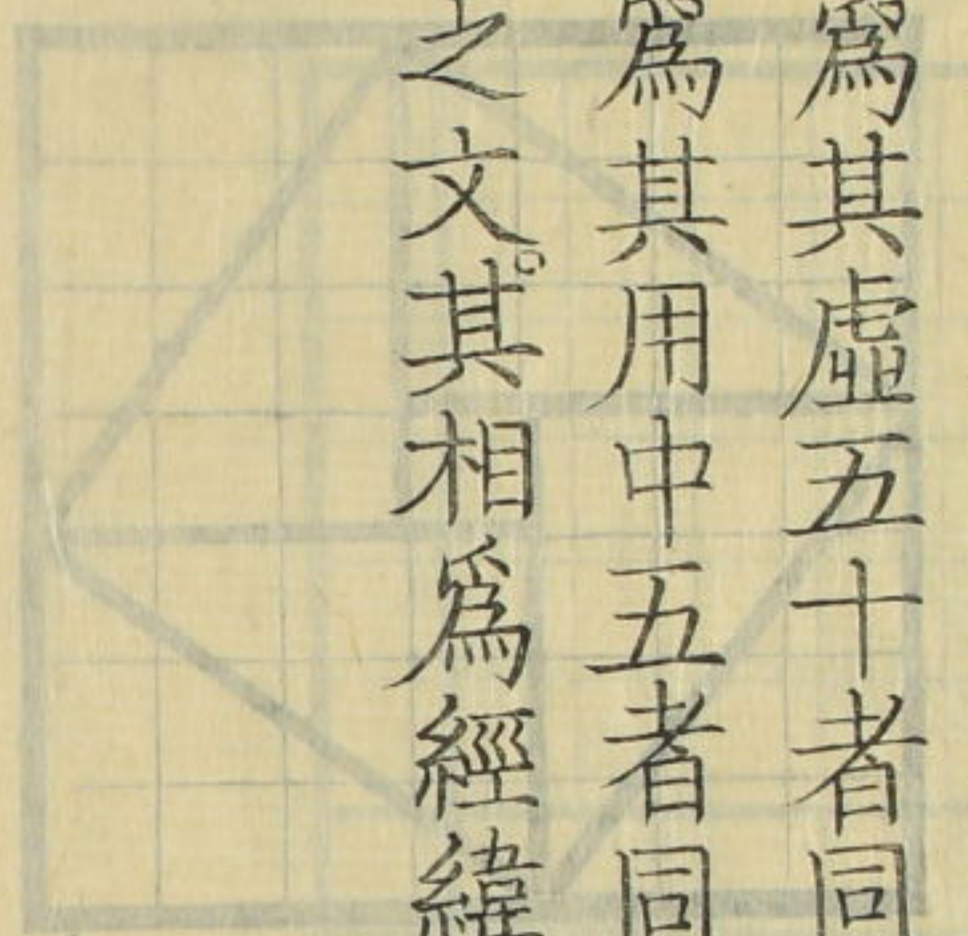 爲其虛五十者同
爲其用中五者同
之文。其相爲經緯